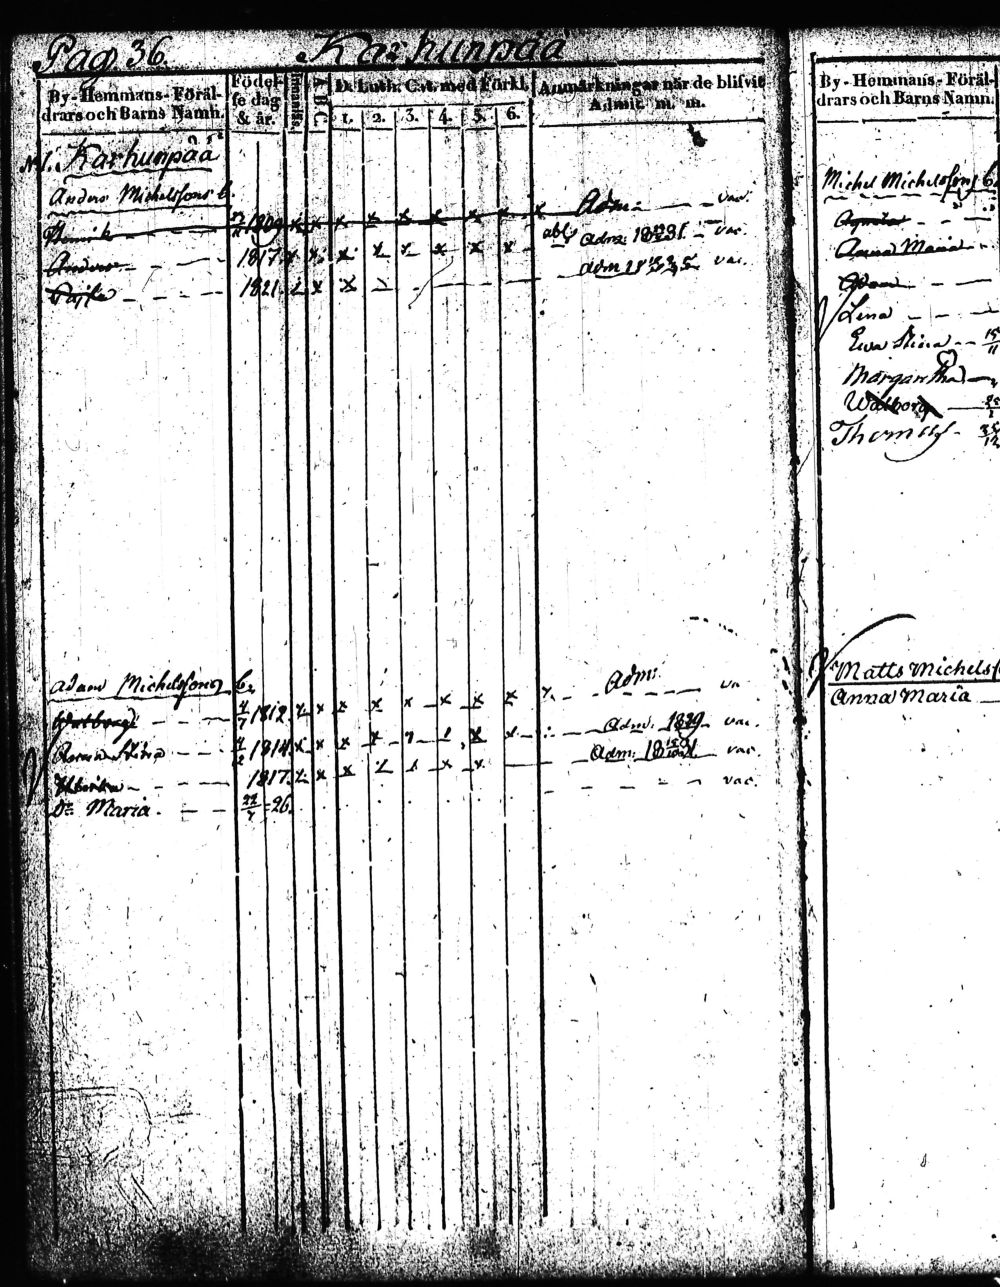 Pag. 36. Karhunpää
By-Hemmans-Föräl-
drars och Barns Namn.
Födel-
se dag
& år.
A. B. C.
D. Luth. Cat. med Förkl.
1. 2. 3. 4. 5. 6.
Anmärkningar när de blifvit
Admit. m. m.
N:1. Karhunpää
Anders Michelssons b.
Henrik 1809 x x x x x x x x x Adm: vac.
Anders 1817 x x x x x x x x Adm: vac.
Cajsa 1821 x x x adm vac.
Adam Michelssons b. Adm:
Walborg 4/7 1812 x x x x x x x x va
Anna Stina 1814 x x x x x Adm: 1829 vac.
Ulrika 1817 x x x x x Adm: vac.
D:r Maria 22/7 -26. vac.
By-Hemmans-Föräl-
drars och Barns Namn.
Michel Michelssons b.
Agneta
Anna Maria
Adam
Lena
Ewa Stina 15/11
Margaretha
Walborg
Thomas 25/12
Matts Michels
Anna Maria